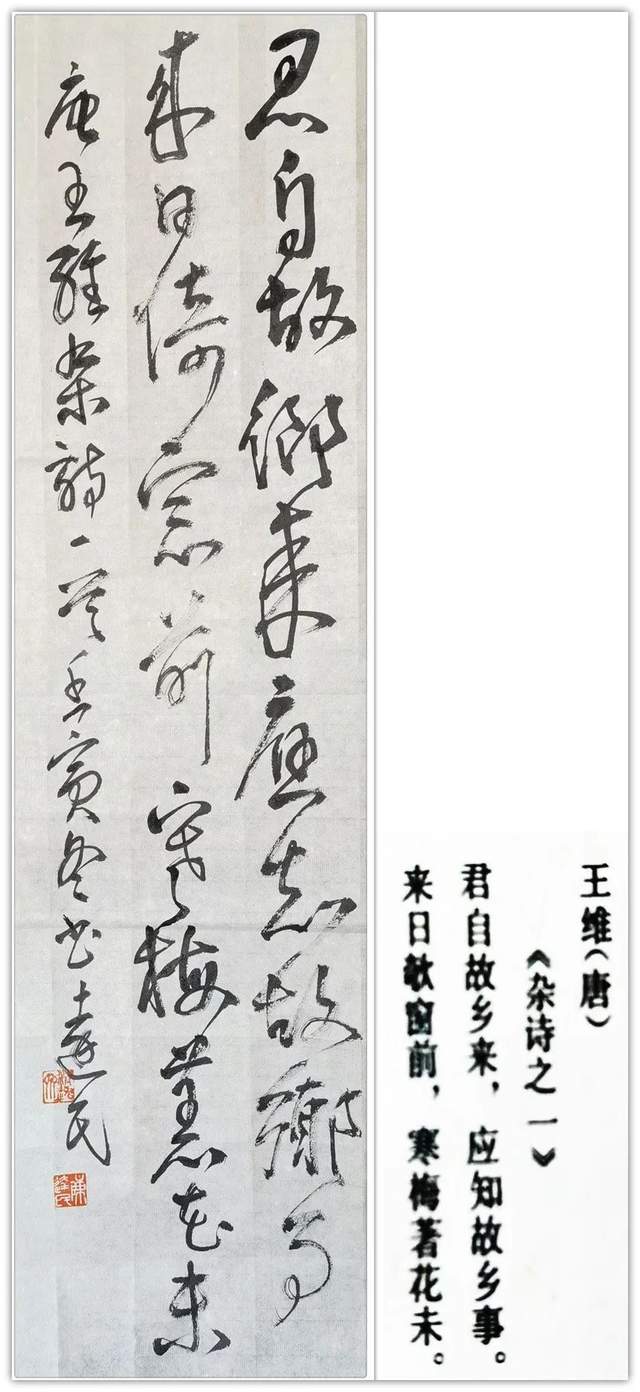 君自故鄉来應知故鄉事
来日倚窓前寒梅着花未
唐王維雜詩一首壬寅冬书達民
王维（唐）
《杂诗之一》
君自故乡来，应知故乡事。
来日欹窗前，寒梅著花未。